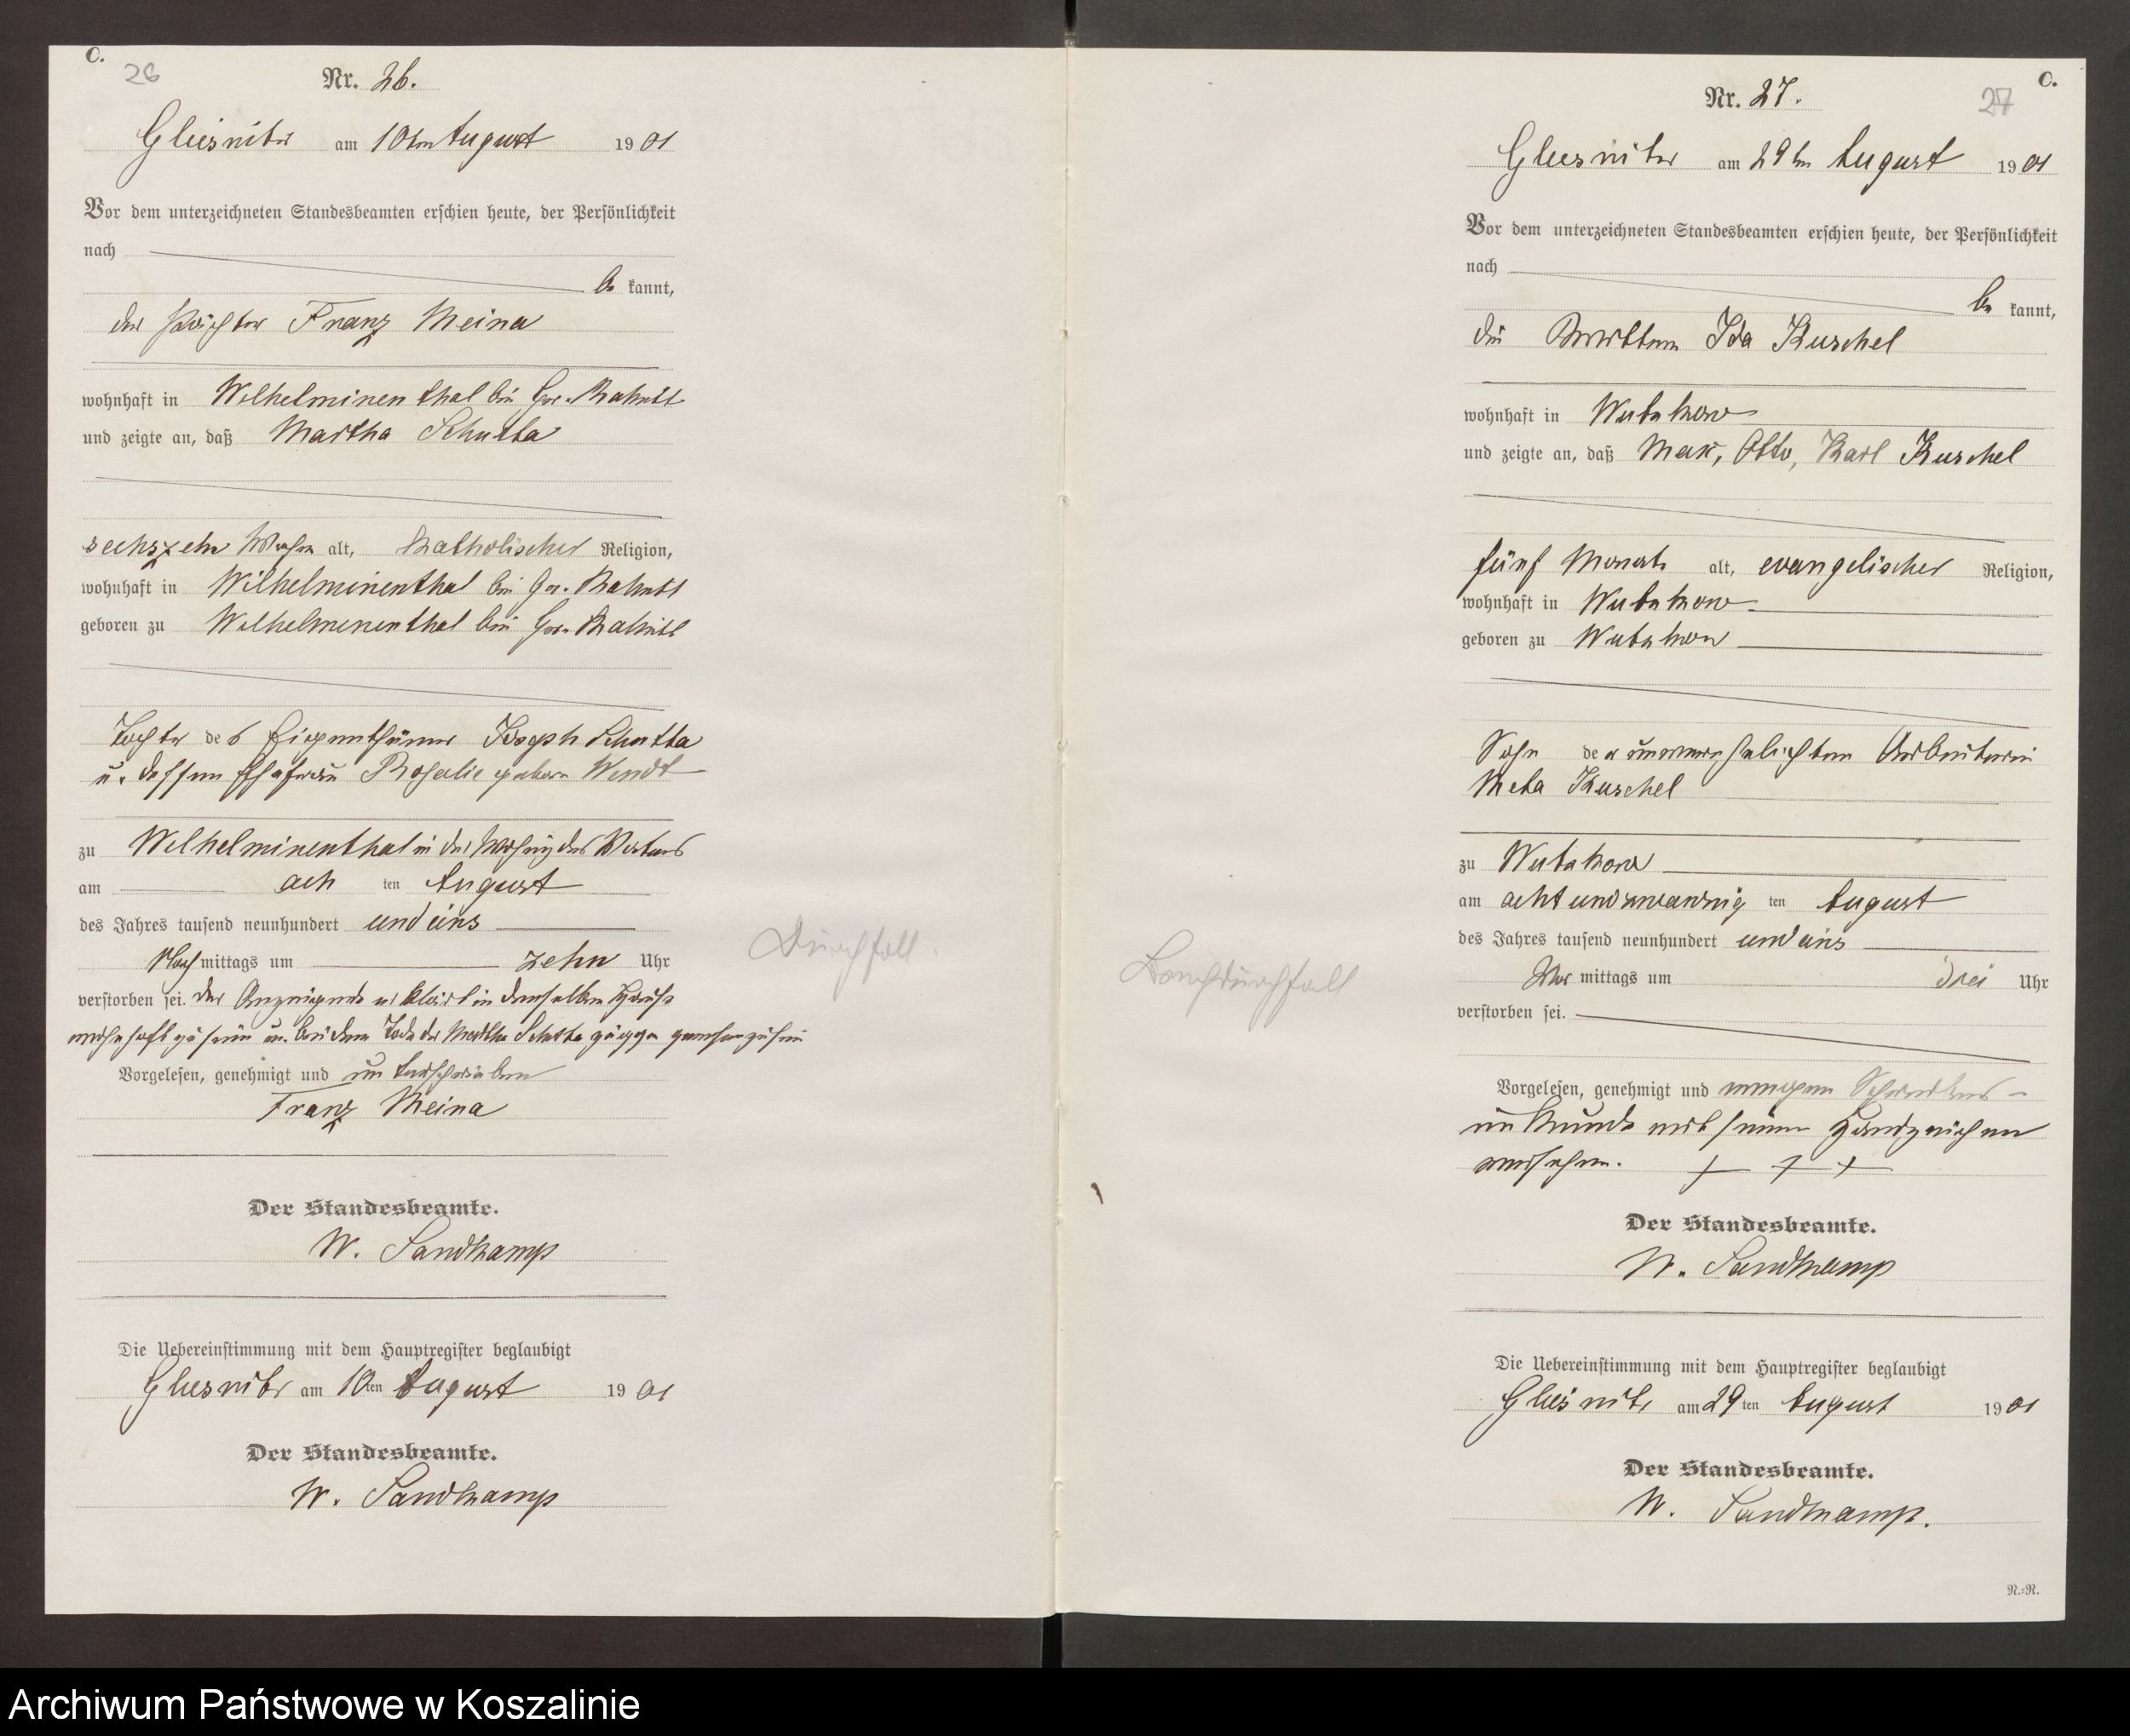 C.
26
Nr. 26.
Gliesnitz am 10ten August 1901
Vor dem unterzeichneten Standesbeamten erschien heute, der Persönlichkeit
nach
be kannt,
der Pächter Franz Meina
wohnhaft in Wilhelminenthal bei Gr.
und zeigte an, daß Martha Schutta
sechszehn Wochen alt, katholischer Religion,
wohnhaft in Wilhelminenthal bei Gr.
geboren zu Wilhelminenthal bei Gr.
Tochter des Eigenthümer Joseph Schutta
u. dessen Ehefrau Rosalie geborn Wendt
zu Wilhelminenthal in der Wohnung des Vaters
am ach ten August
des Jahres tausend neunhundert und eins
Nach mittags um zehn Uhr
verstorben sei. Der Anzeigende erklärt in demselben Hause
wohnhaft zu sein u. bei dem Tode der Martha Schutta zugegen gewesen zu sein
Vorgelesen, genehmigt und unterschrieben
Franz Meina
Der Standesbeamte.
W. Sandkamp
Die Uebereinstimmung mit dem Hauptregister beglaubigt
Gliesnitz am 10ten August 1901
Der Standesbeamte.
W. Sandkamp
Durchfall.
C.
27
Nr. 27.
Gliesnitz am 29ten August 1901
Vor dem unterzeichneten Standesbeamten erschien heute, der Persönlichkeit
nach
be kannt,
die Ida Kuschel
wohnhaft in Wutzkow
und zeigte an, daß Max, Otto, Karl Kuschel
fünf Monate alt, evangelischer Religion,
wohnhaft in Wutzkow
geboren zu Wutzkow
Sohn der unverehelichten Arbeiterin
Meta Kuschel
zu Wutzkow
am achtundzwanzig ten August
des Jahres tausend neunhundert und eins
Vor mittags um drei Uhr
verstorben sei.
Vorgelesen, genehmigt und wegen Schreibens-
unkunde mit seinem Handzeichen
versehen. + + +
Der Standesbeamte.
W. Sandkamp
Die Uebereinstimmung mit dem Hauptregister beglaubigt
Gliesnitz am 29ten August 1901
Der Standesbeamte.
W. Sandkamp.
N.=R.
Brechdurchfall
Archiwum Państwowe w Koszalinie